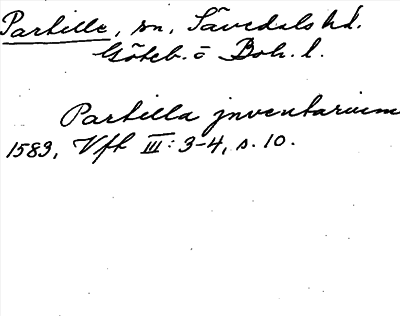 Partille, sn, Sävedals hd.
Göteb. o Boh. l.
Partilla jnventarium
1583, Vfl III: 3-4, s. 10.